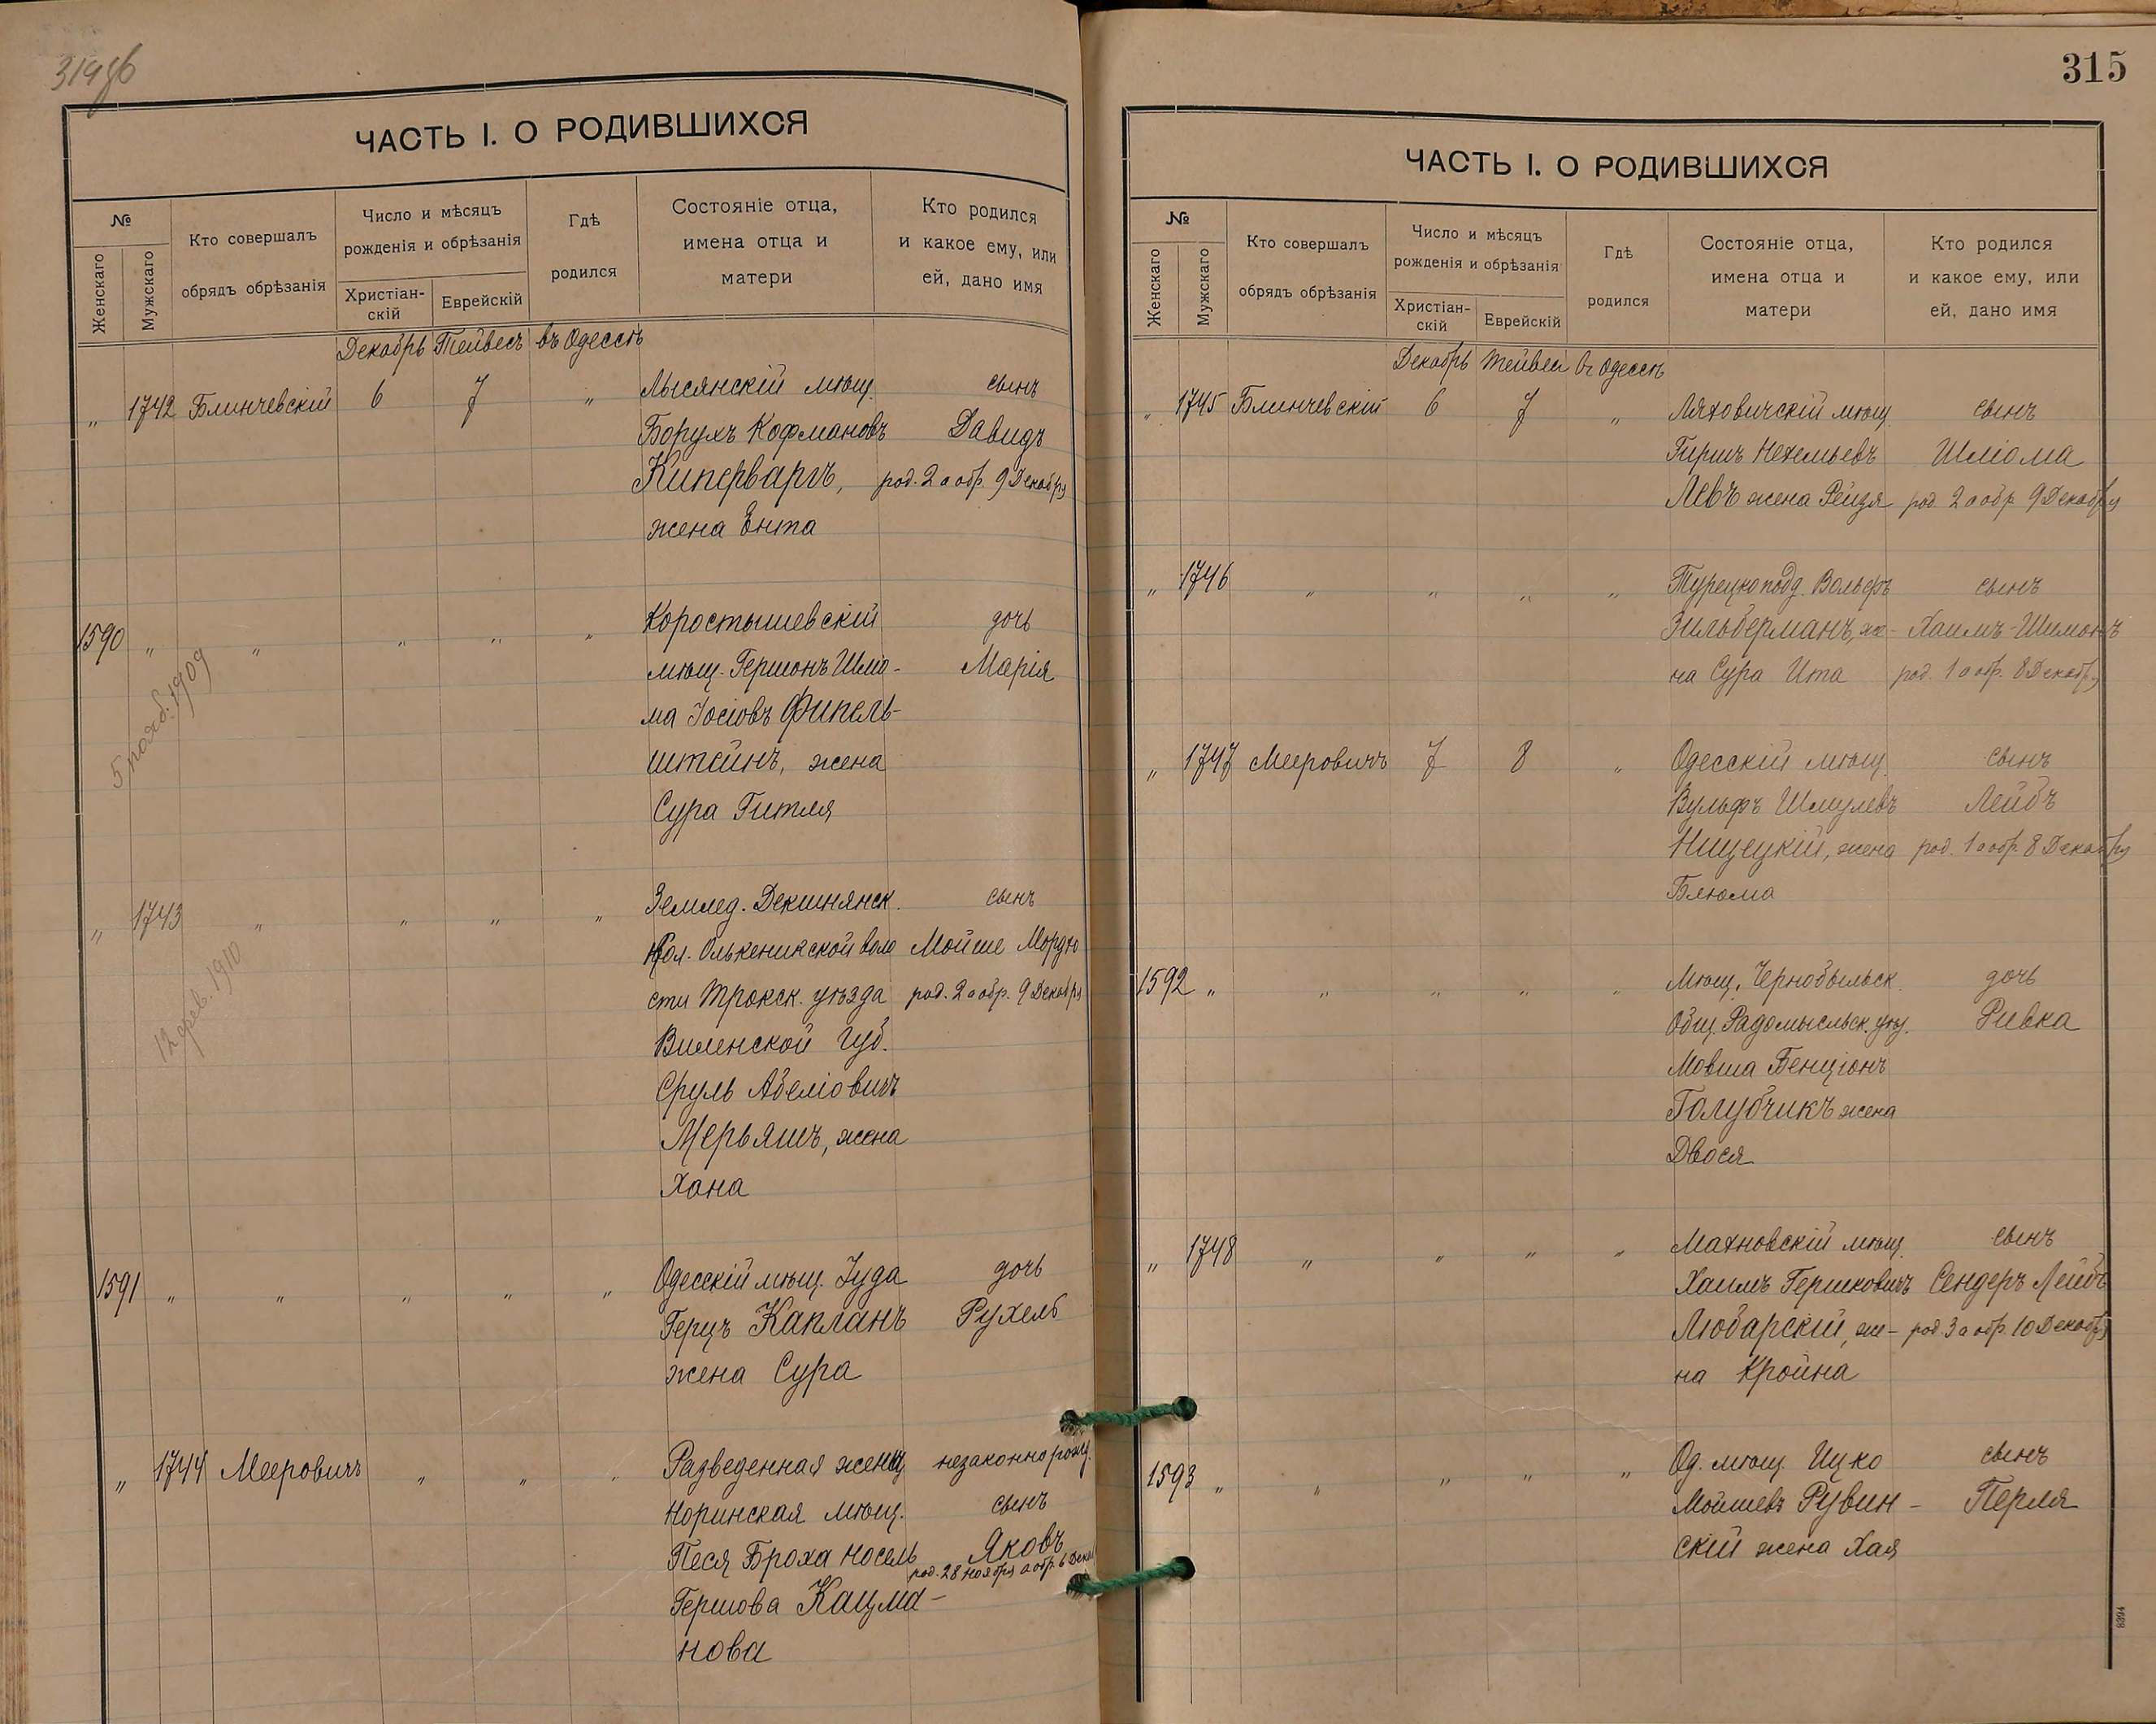 315
ЧАСТЬ I. О РОДИВШИХСЯ
№
Женскаго
Мужскаго
Кто совершалъ
обрядъ обрѣзанія
Число и мѣсяцъ
рожденія и обрѣзанія
Христіан-
скій
Еврейскій
Гдѣ
родился
Состояніе отца,
имена отца и
матери
Кто родился
и какое ему, или
ей, дано имя
Декабрь Тейвесъ въ Одессѣ
„ 1742 Блинчевскій 6 7 „ Лысянскій мѣщ. сынъ
Борухъ Кофмановъ Давидъ
Кипервargъ, род. 2 а обр. 9 Декабря
жена Ента
1590 „ „ „ „ „ Коростышевскій дочь
мѣщ. Гершонъ Шліо- Марія
ма Іосіовъ Финель-
штейнъ, жена
Сура Гитля
5 нояб. 1909
„ 1743 „ „ „ „ Землед. Декшнянск. сынъ
Кол. Олькеникской воло Мойше Мордко
сти Трокск. уѣзда род. 2 а обр. 9 Декабря
Виленской Губ.
Сруль Абеліовичъ
Мерьяшъ, жена
Хана
12 фев. 1910
1591 „ „ „ „ „ Одесскій мѣщ. Іуда дочь
Герцъ Капланъ Рухель
жена Сура
„ 1744 Мееровичъ „ „ „ Разведенная жена незаконнорожд.
Норинская мѣщ. сынъ
Песя Броха Носель Яковъ
род. 28 Ноября а обр. 6 Дек
Гершова Кацма-
нова
ЧАСТЬ I. О РОДИВШИХСЯ
№
Женскаго
Мужскаго
Кто совершалъ
обрядъ обрѣзанія
Число и мѣсяцъ
рожденія и обрѣзанія
Христіан-
скій
Еврейскій
Гдѣ
родился
Состояніе отца,
имена отца и
матери
Кто родился
и какое ему, или
ей, дано имя
Декабрь Тейвес В Одессѣ
„ 1745 Блинчевскій 6 7 „ Ляховичскій мѣщ. сынъ
Гиршъ Нехемьевъ Шліома
Левъ жена Рейзя род. 2 а обр. 9 Декабря
„ 1746 „ „ „ „ Турецкоподд. Вольфъ сынъ
Зильберманъ, же- Хаимъ-Шимонъ
на Сура Ита род. 1 а обр. 8 Декабря
„ 1747 Мееровичъ 7 8 „ Одесскій мѣщ. сынъ
Вульфъ Шмулевъ Лейбъ
Нищецкій, жена род. 1 а обр. 8 Декабря
Блюма
1592 „ „ „ „ „ Мѣщ. Чернобыльск. дочь
Общ. Радомысльск. уѣз. Ривка
Мовша Бенціонъ
Голубчикъ жена
Двося
„ 1748 „ „ „ „ Махновскій мѣщ. сынъ
Хаимъ Гершковичъ Сендеръ Лейбъ
Любарскій, же- род 3 а обр. 10 Декабря
на Кройна
1593 „ „ „ „ „ Од. мѣщ. Ицко сынъ
Мойшевъ Рувин- Перля
скій жена Хая
8394